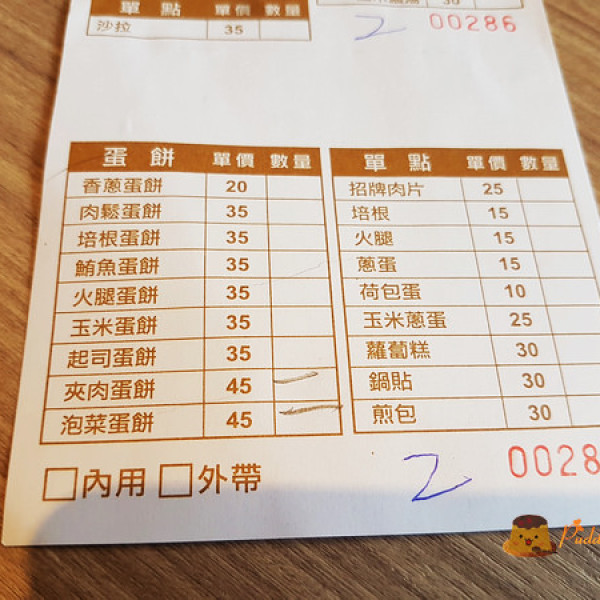 單點 單價 數量
沙拉 35
30
2 00286
蛋餅 單價 數量
香蔥蛋餅 20
肉鬆蛋餅 35
培根蛋餅 35
鮪魚蛋餅 35
火腿蛋餅 35
玉米蛋餅 35
起司蛋餅 35
夾肉蛋餅 45
泡菜蛋餅 45
單點 單價 數量
招牌肉片 25
培根 15
火腿 15
蔥蛋 15
荷包蛋 10
玉米蔥蛋 25
蘿蔔糕 30
鍋貼 30
煎包 30
□內用 □外帶
2 0028